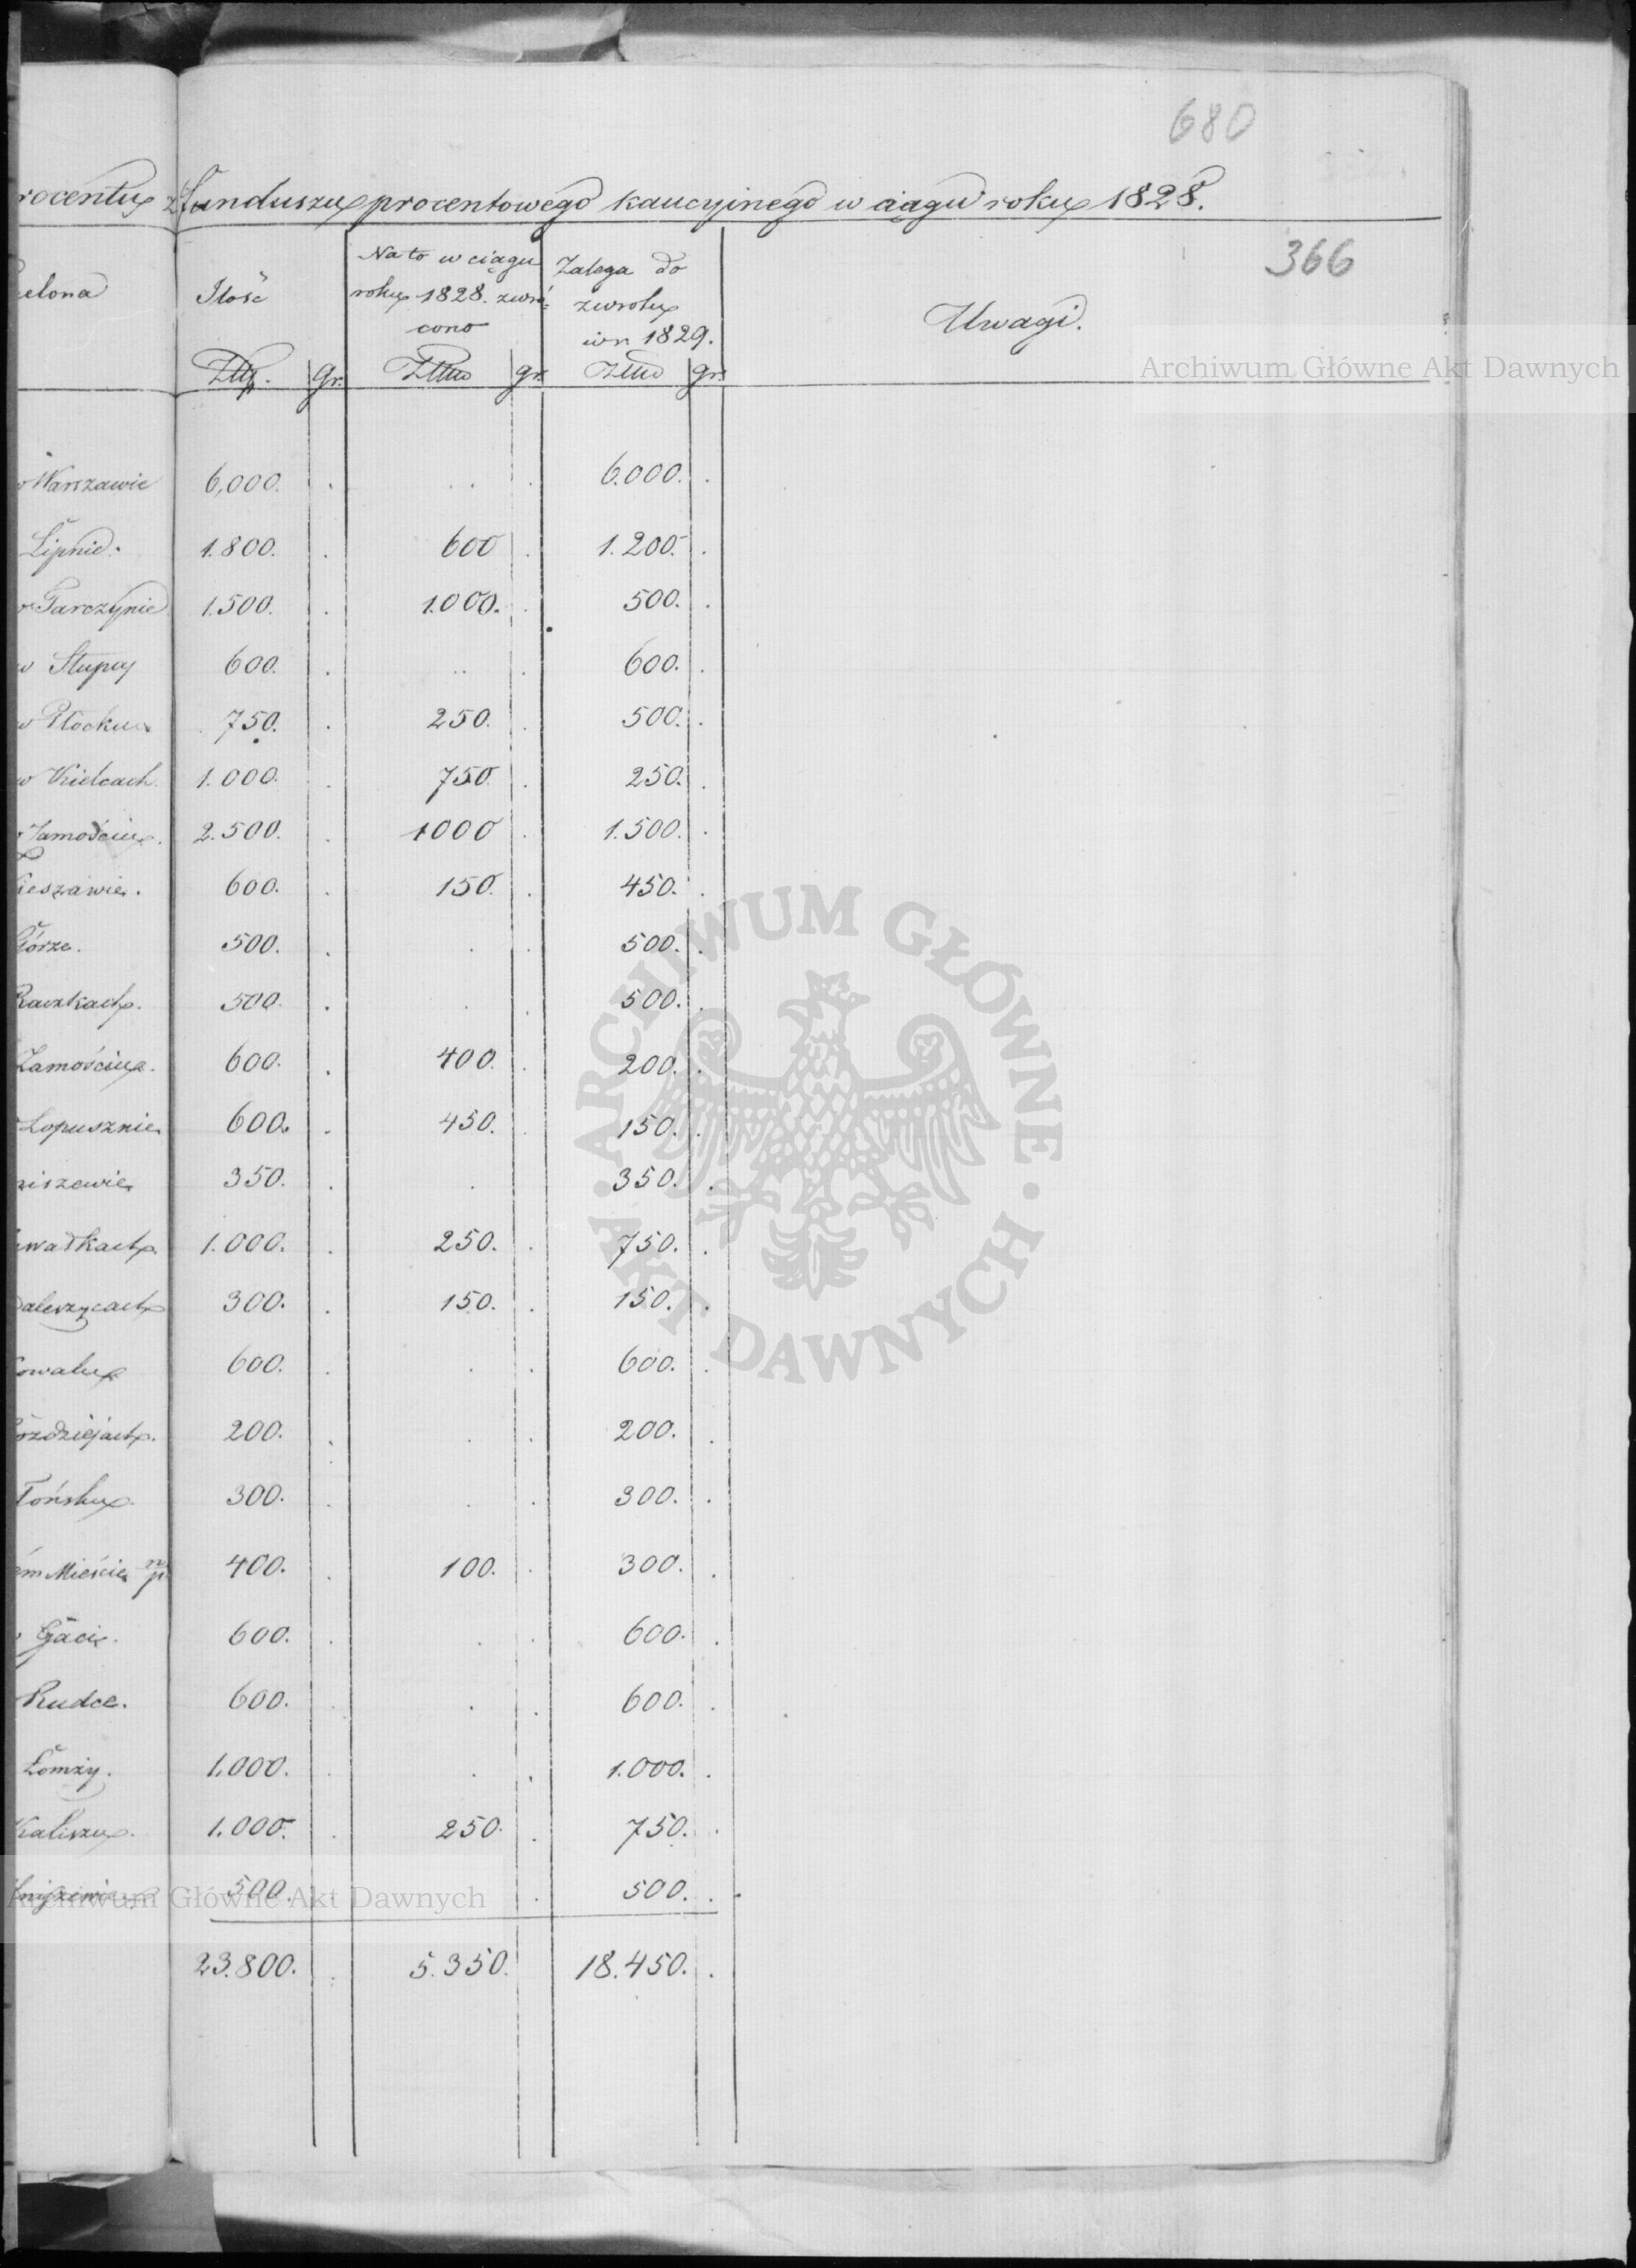 680
rocentu z funduszu procentowego kaucyinego w ciągu roku 1828.
366
elona Ilość Na to w ciągu roku 1828. zwrócono Zalega do zwrotu w r. 1829. Uwagi.
Złtp. gr. Złtto gr. Złtto gr.
w Warszawie 6,000. . . . . 6.000. .
Lipnie. 1.800. . 600 . 1.200. .
w Tarczynie 1.500. . 1.000. . 500. .
w Słupcy 600. . .. . 600. .
w Płocku 750. . 250. . 500. .
w Kielcach 1.000. . 750. . 250. .
Zamościu. 2.500. . 1000 . 1.500. .
ieszawie. 600. . 150. . 450. .
Górze. 500. . . . 500. .
Raczkach. 500. . . . 500. .
Zamościu. 600. . 400. . 200. .
Łopusznie 600. . 450. . 150. .
niszewie 350. . . 350. .
wałkach. 1.000. . 250. . 750. .
Daleszycach 300. . 150. . 150. .
owalu 600. . . . 600. .
oździejach. 200. . . . 200. .
Płońsku. 300. . . . 300. .
ém Mieście n/p. 400. . 100. . 300. .
w Gaci. 600. . . . 600. .
Rudce. 600. . . . 600. .
Łomży. 1.000. . . . 1.000. .
Kaliszu. 1.000. . 250. . 750. .
niszewie 500. . 500. .
23.800. . 5.350. 18.450. .
Archiwum Główne Akt Dawnych
ARCHIWUM GŁÓWNE AKT DAWNYCH
Archiwum Główne Akt Dawnych